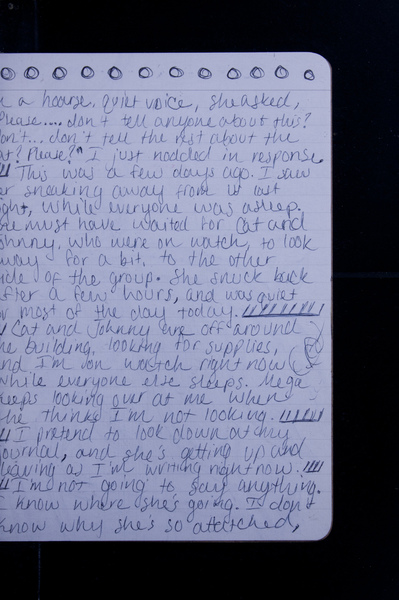 a hoarse, quiet voice, she asked,
Please.... don't tell anyone about this?
don't... don't tell the rest about the
at? Please?" I just nodded in response.
This was a few days ago. I saw
er sneaking away from us last
ight, while everyone was asleep.
he must have waited for Cat and
Johnny, who were on watch, to look
way for a bit, to the other
ide of the group. She snuck back
after a few hours, and was quiet
or most of the day today.
Cat and Johnny are off around
he building, looking for supplies,
nd I'm on watch right now
while everyone else sleeps. Mega
eeps looking over at me when
he thinks I'm not looking.
I pretend to look down at my
journal, and she's getting up and
leaving as I'm writing right now.
I'm not going to say anything.
I know where she's going. I don't
know why she's so attatched,